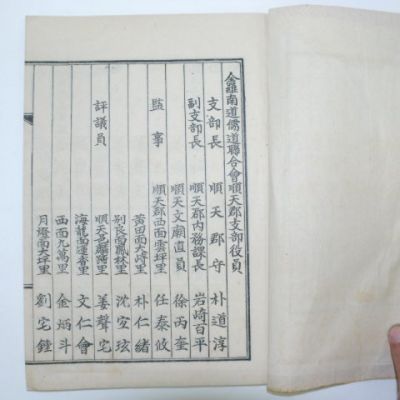 全羅南道儒道聯合會順天郡支部役員
支部長 順天郡守 朴道淳
副支部長 順天郡內務課長 岩崎百平
順天文廟直員 徐丙奎
監事 順天郡西面雲坪里 任泰攸
黃田面大峙里 朴仁緖
別良面鳳林里 沈宜玹
評議員 順天邑 姜聲宅
海龍面 文仁會
西面九萬里 金炳斗
月燈面大坪里 劉宅鍾